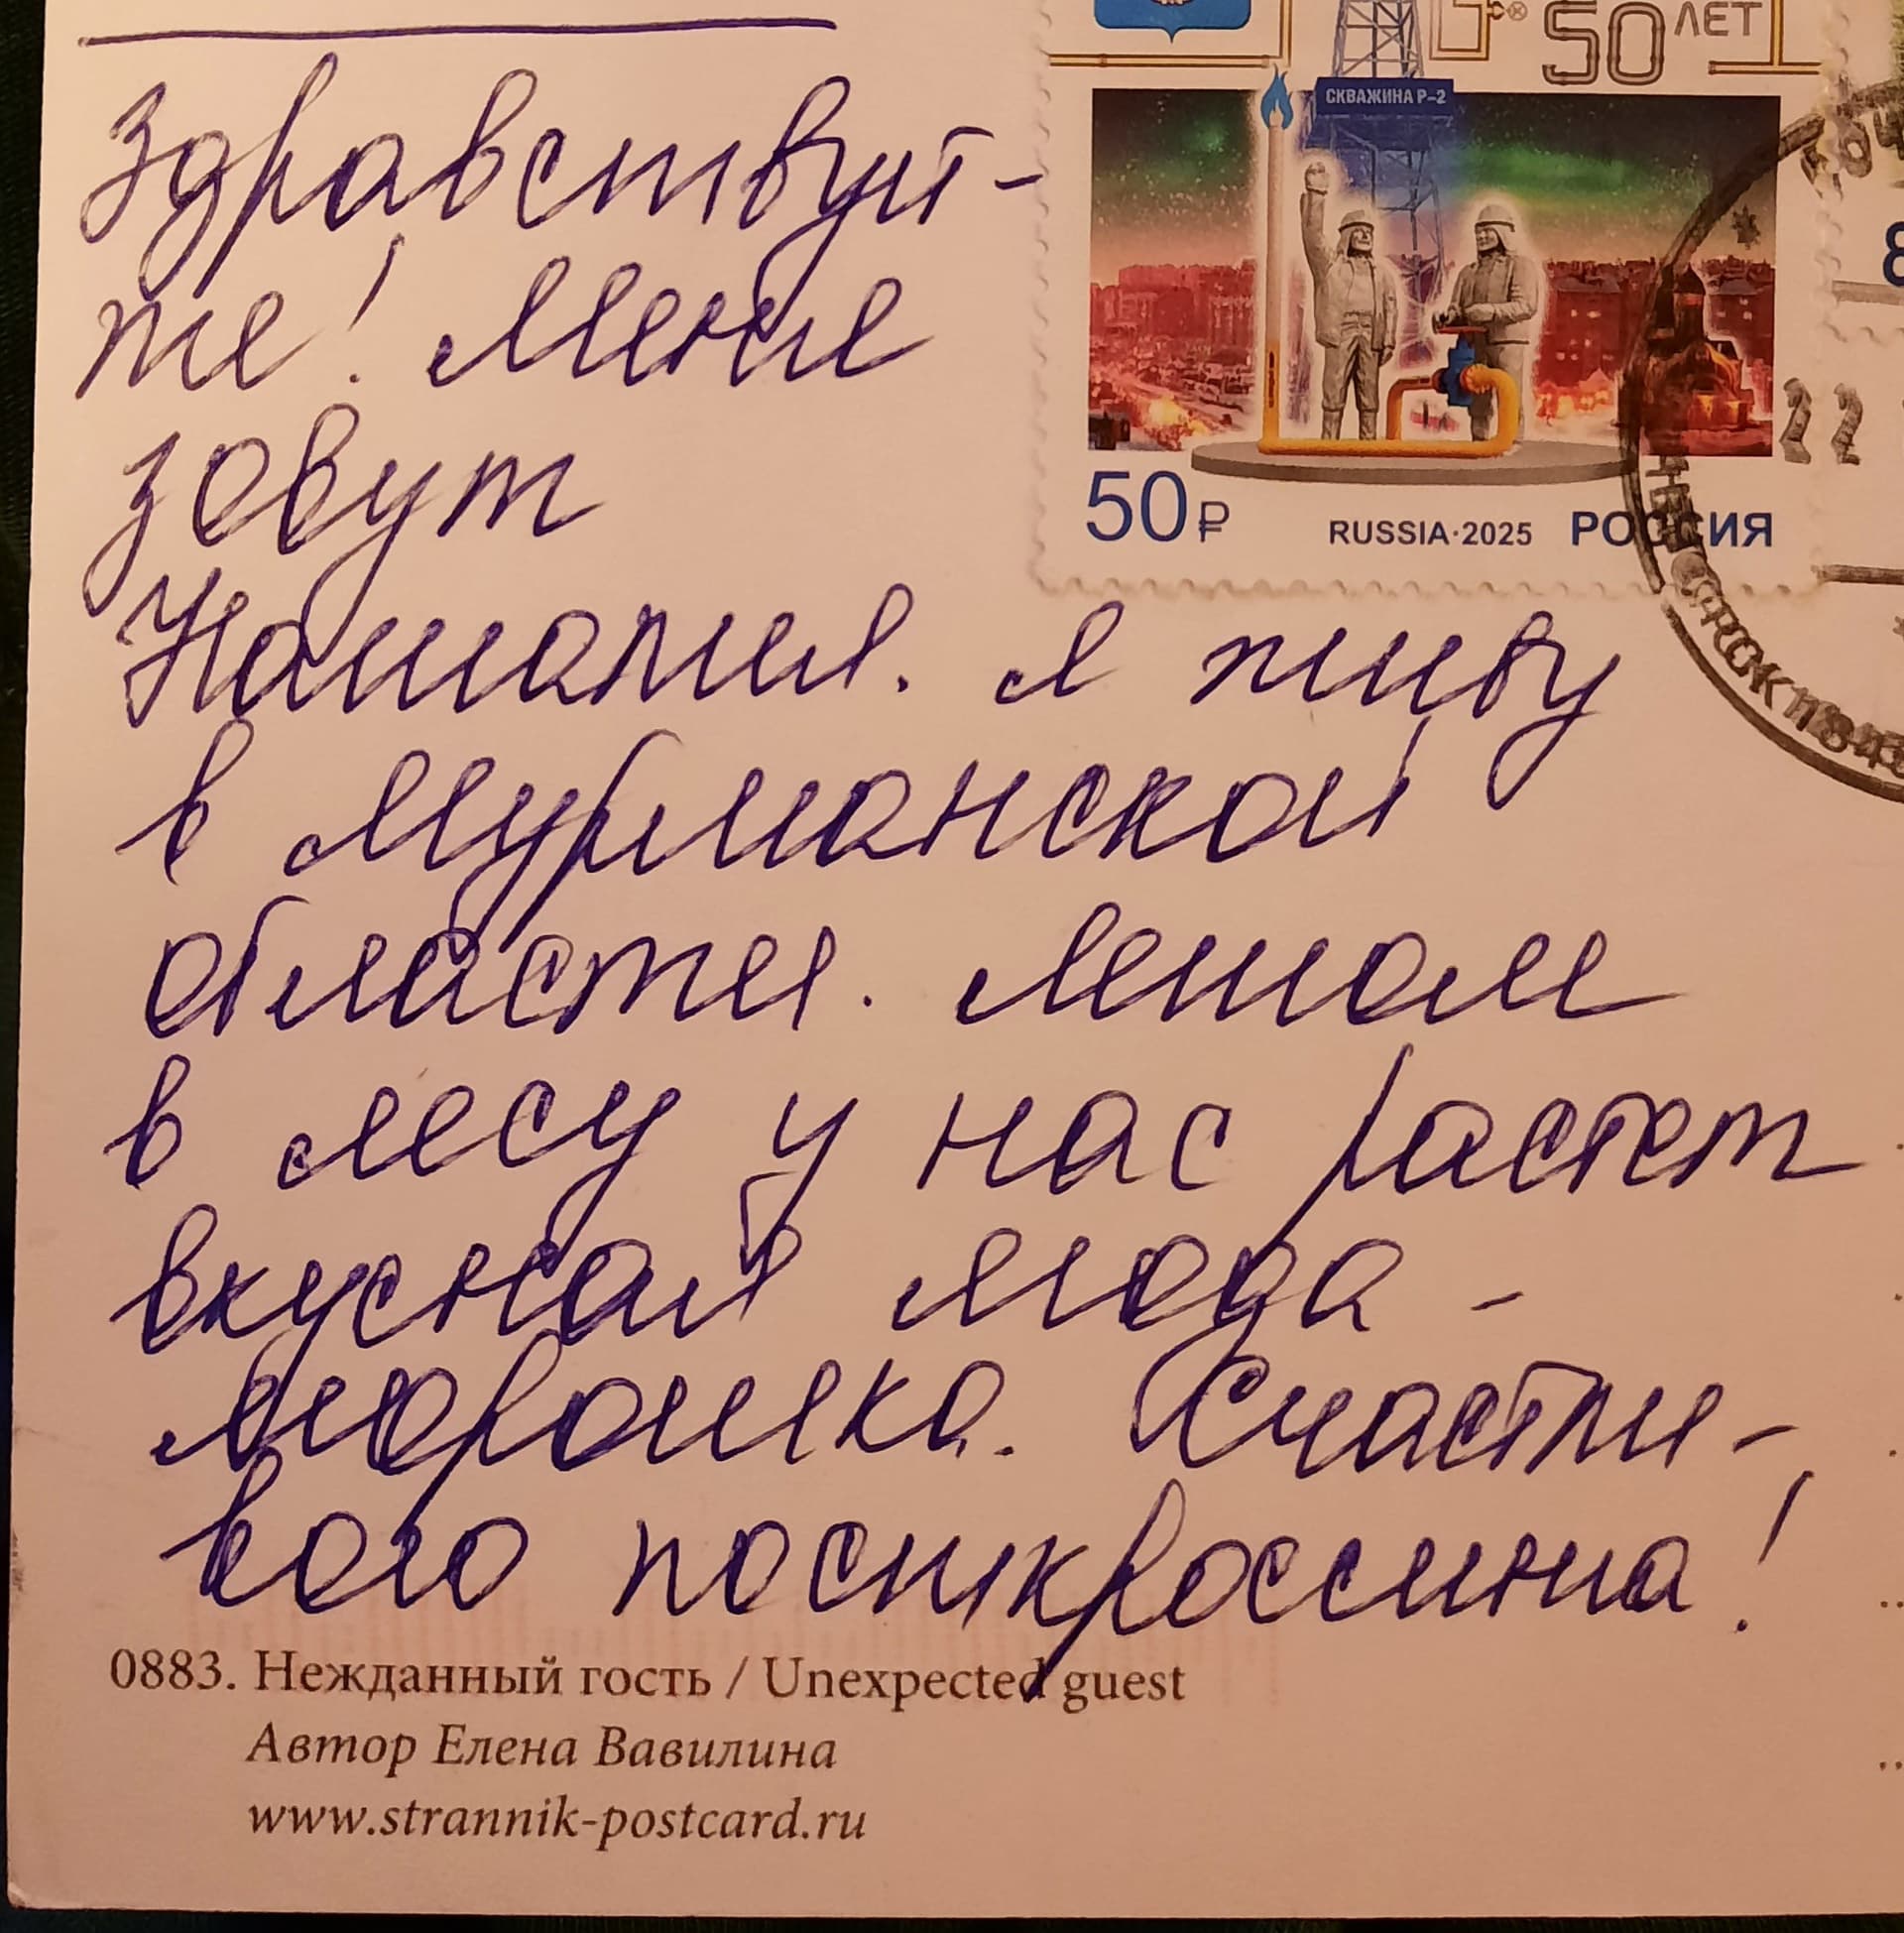 50 ЛЕТ
СКВАЖИНА Р-2
50₽
RUSSIA·2025 РОССИЯ
22
Здравствуй-
те! Меня
зовут
Наталия. Я живу
в Мурманской
области. Летом
в лесу у нас растет
вкусная ягода -
морошка. Счастли-
вого посткроссинга!
0883. Нежданный гость / Unexpected guest
Автор Елена Вавилина
www.strannik-postcard.ru